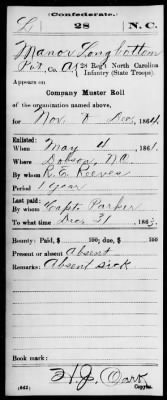 (Confederate.)
L 28 N.C.
Manor Longbottom
Pvt, Co. A, 28 Reg't North Carolina
Infantry (State Troops).
Appears on
Company Muster Roll
of the organization named above,
for Nov. & Dec., 1864.
Enlisted:
When May 4, 1861.
Where Dobson, N.C.
By whom R.E. Reeves
Period 1 year
Last paid:
By whom Capt. Parker
To what time Dec. 31, 1863.
Bounty: Paid, $ 100; due, $ 100
Present or absent Absent
Remarks: Absent sick
Book mark:
(642) H.J. Copyist.